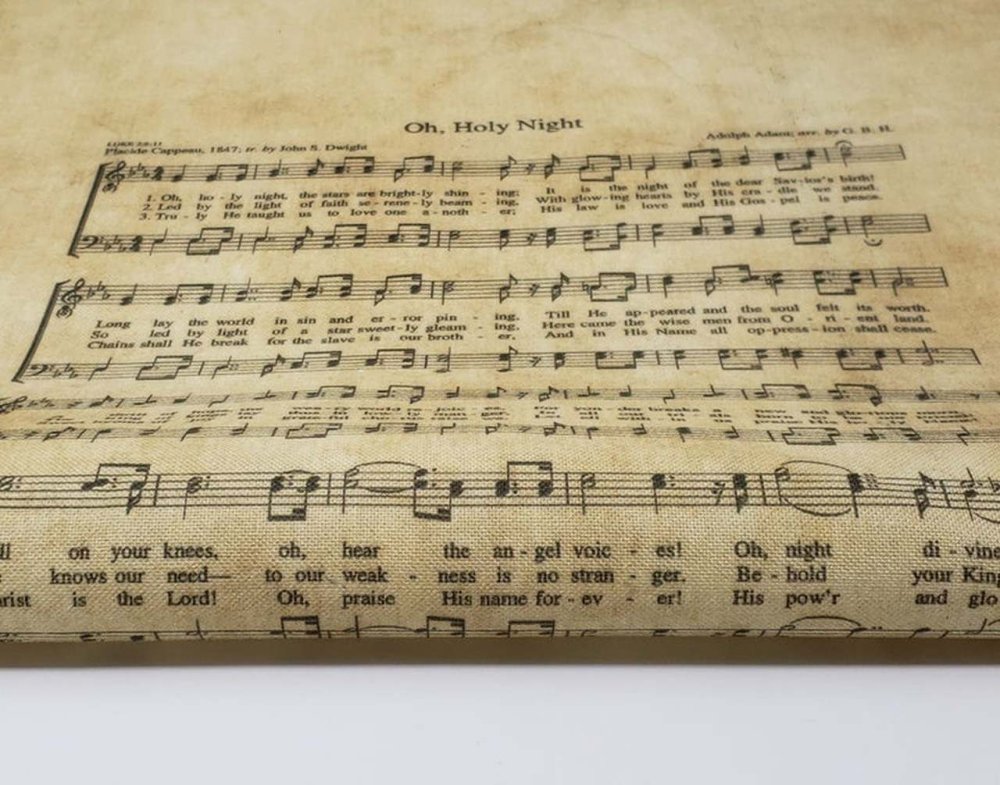 Oh, Holy Night
Placide Cappeau, 1847; tr. by John S. Dwight
Adolph Adam; arr. by G. B. H.
1. Oh, ho - ly night, the stars are bright-ly shin - ing; It is the night of the dear Sav-ior's birth!
2. Led by the light of faith se - rene - ly beam - ing, With glow-ing hearts by His cra - dle we stand.
3. Tru - ly He taught us to love one a - noth - er; His law is love and His Gos - pel is peace.
Long lay the world in sin and er - ror pin - ing, Till He ap-peared and the soul felt its worth.
So led by light of a star sweet-ly gleam - ing, Here came the wise men from O - ri - ent land.
Chains shall He break for the slave is our broth - er, And in His Name all op-press - ion shall cease.
on your knees, oh, hear the an - gel voic - es! Oh, night di - vine
knows our need— to our weak - ness is no stran - ger. Be - hold your King
is the Lord! Oh, praise His name for - ev - er! His pow'r and glo